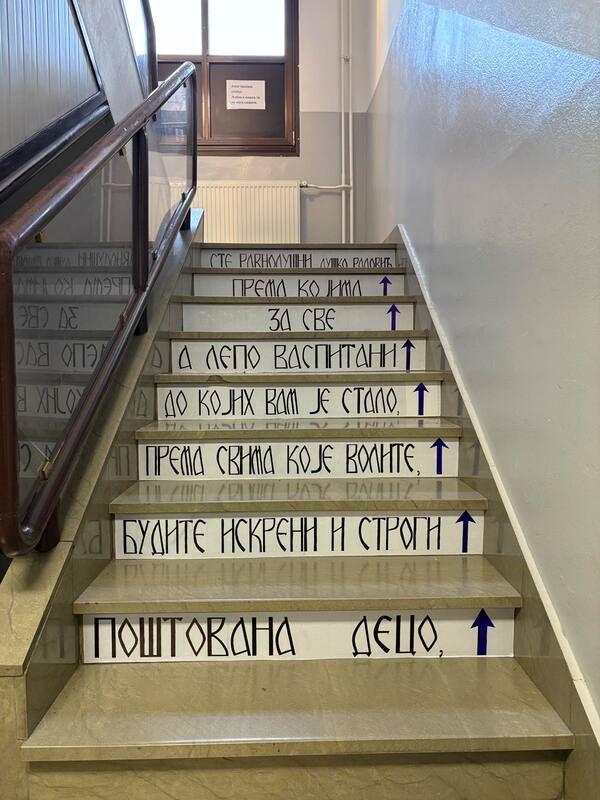 ПОШТОВАНА ДЕЦО,
БУДИТЕ ИСКРЕНИ И СТРОГИ
ПРЕМА СВИМА КОЈЕ ВОЛИТЕ,
ДО КОЈИХ ВАМ ЈЕ СТАЛО,
А ЛЕПО ВАСПИТАНИ
ЗА СВЕ
ПРЕМА КОЈИМА
СТЕ РАВНОДУШНИ ДУШКО РАДОВИЋ